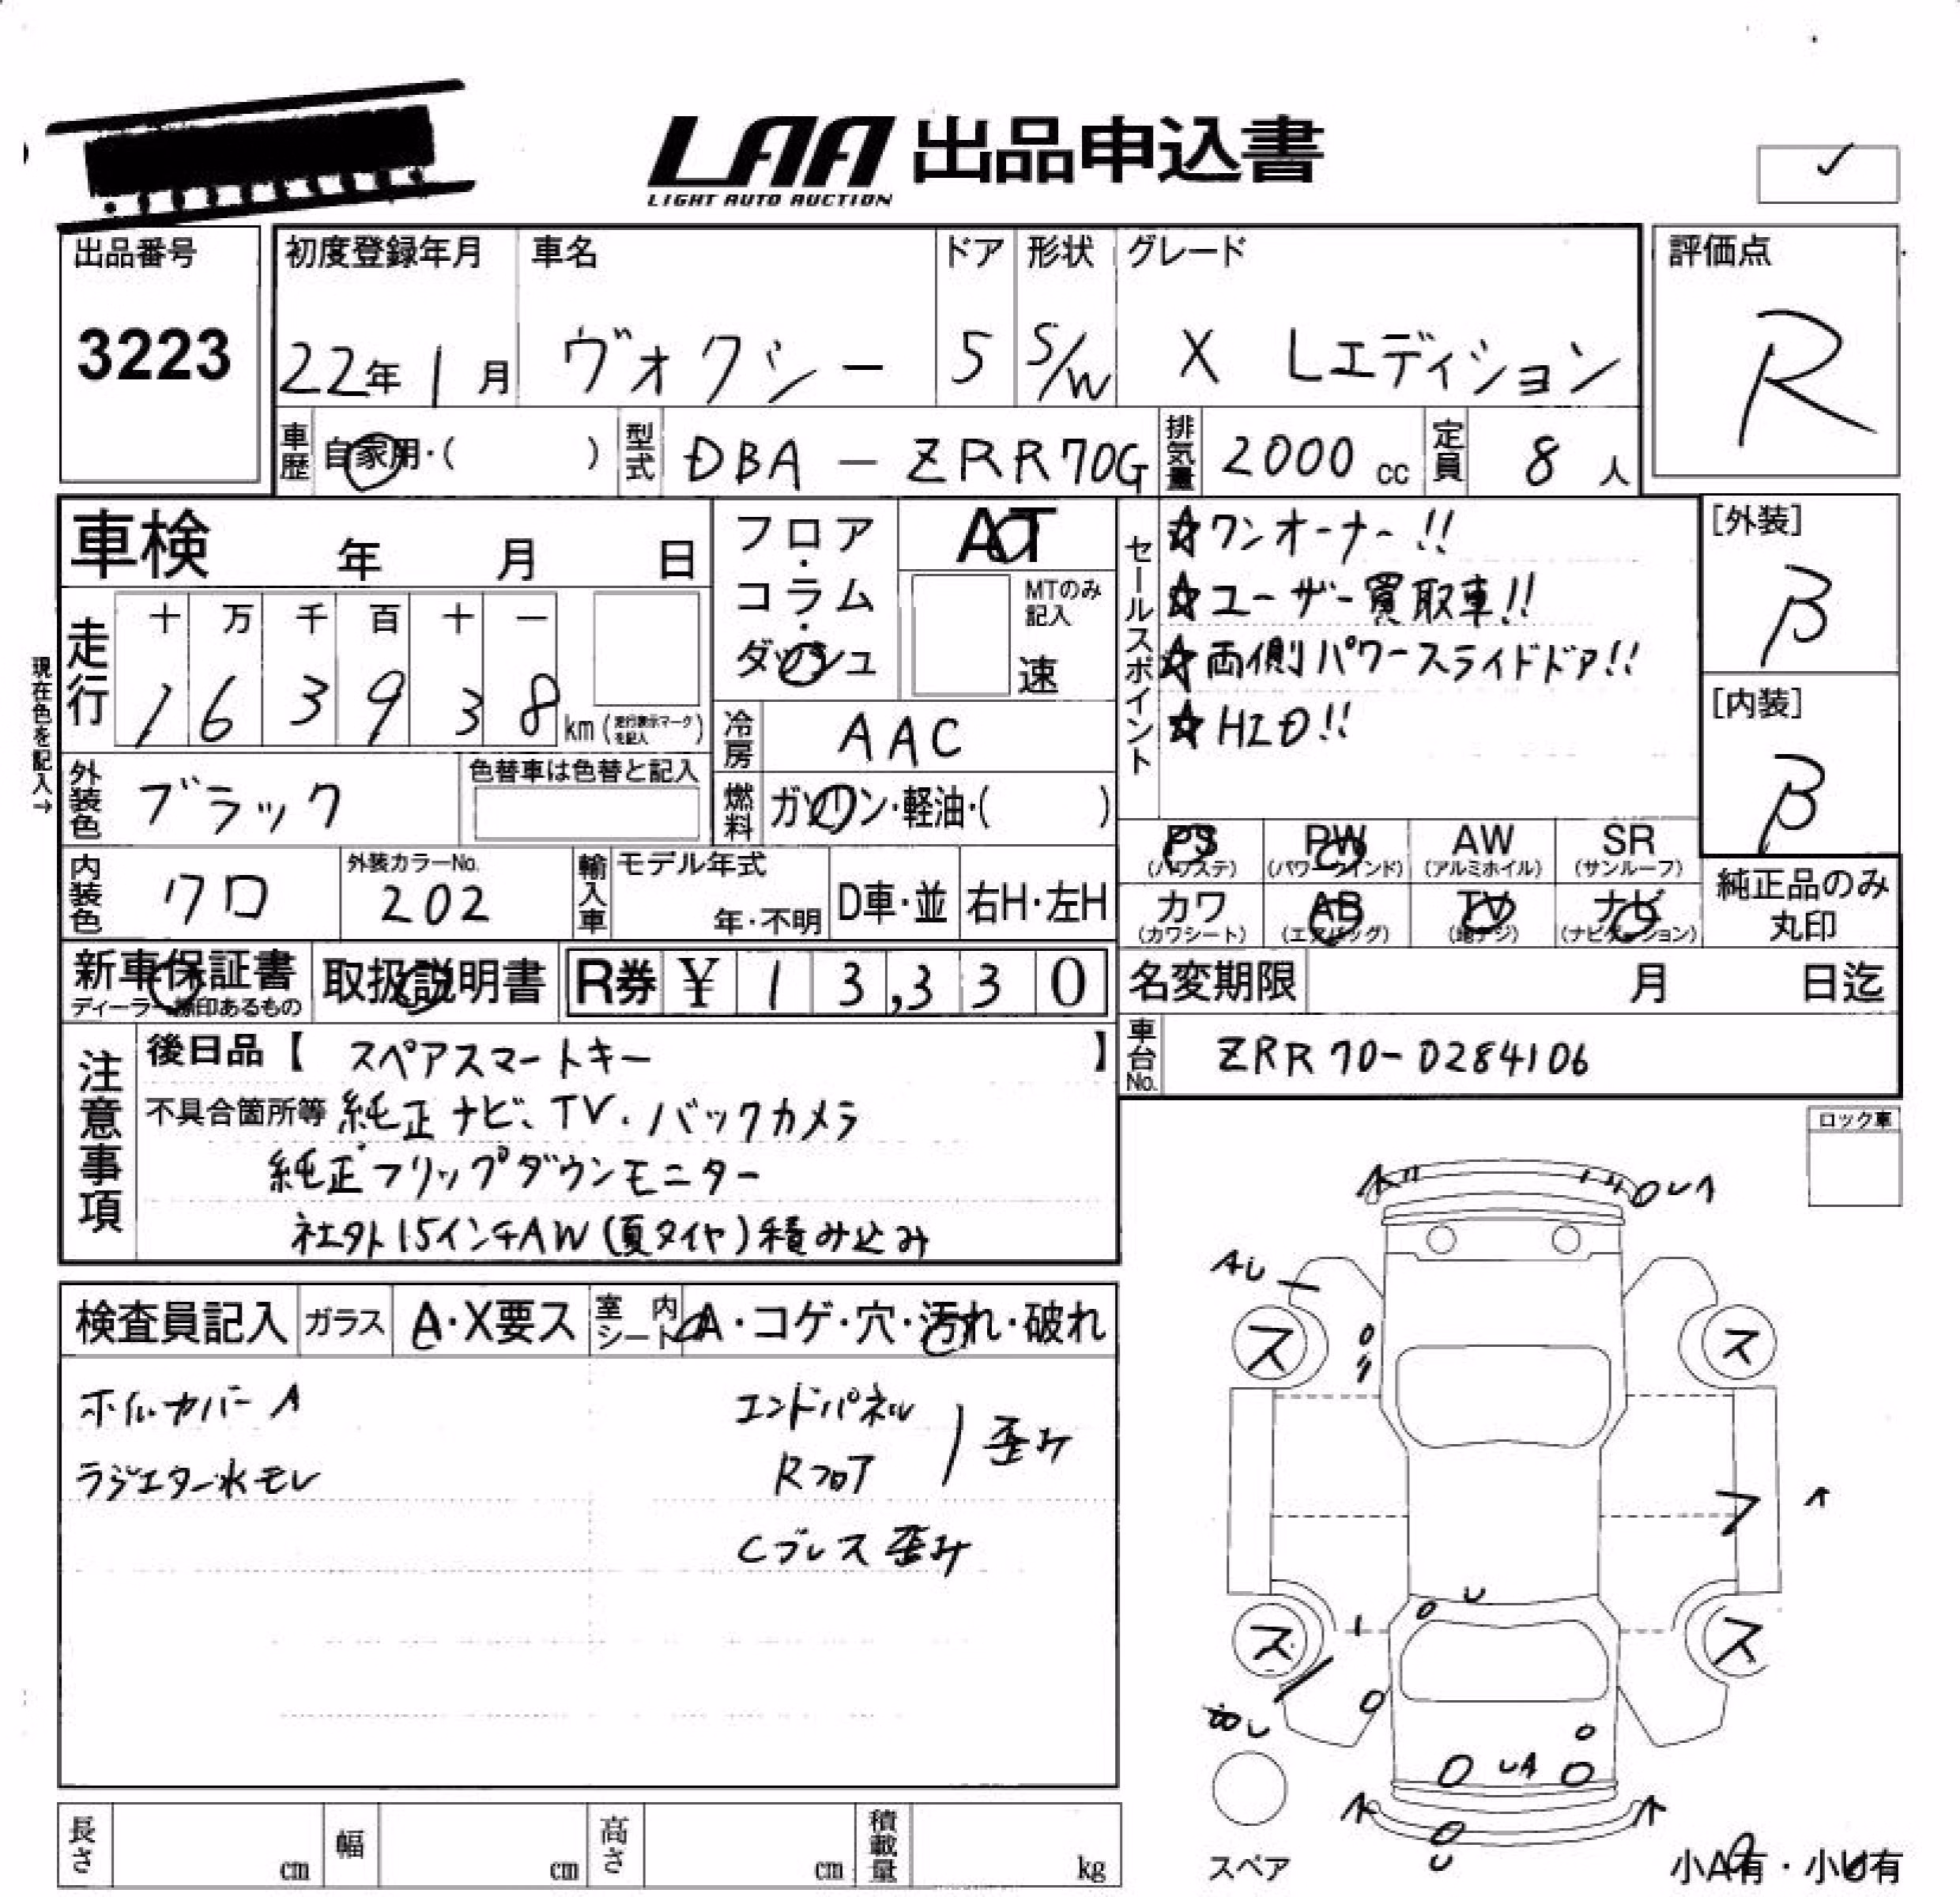 LAA 出品申込書
LIGHT AUTO AUCTION
出品番号
3223
初度登録年月
22年1月
車名
ヴォクシー
ドア
5
形状
S/W
グレード
X Lエディション
評価点
R
車歴
自家用・( )
型式
DBA-ZRR70G
排気量
2000cc
定員
8人
車検 年 月 日
フロア・コラム・ダッシュ
AT
MTのみ記入
速
セールスポイント
☆ワンオーナー!!
☆ユーザー買取車!!
☆両側パワースライドドア!!
☆HID!!
[外装]
β
[内装]
β
現在色を記入→
走行
十 万 千 百 十 一
1 6 3 9 3 8 km (走行表示マークを記入)
冷房
AAC
燃料
ガソリン・軽油・( )
外装色
ブラック
色替車は色替と記入
内装色
クロ
外装カラーNo.
202
輸入車
モデル年式
年・不明
D車・並
右H・左H
PS
(パワステ)
PW
(パワーウインド)
AW
(アルミホイル)
SR
(サンルーフ)
カワ
(カワシート)
AB
(エアバッグ)
TV
(地デジ)
ナビ
(ナビゲーション)
純正品のみ
丸印
新車保証書
ディーラー捺印あるもの
取扱説明書
R券 ¥ 1 3,3 3 0
名変期限 月 日迄
車台No.
ZRR70-0284106
注意事項
後日品【 スペアスマートキー 】
不具合箇所等 純正ナビ、TV.バックカメラ
純正フリップダウンモニター
社外15インチAW(夏タイヤ)積み込み
ロック車
検査員記入
ガラス
A・X要ス
室内シート
A・コゲ・穴・汚れ・破れ
ホイルカバーA
ラジエター水モレ
エンドパネル
Rフロア
歪み
Cブレス歪み
AU
ス
ス
ス
ス
UA
スペア
小A有・小U有
長さ
cm
幅
cm
高さ
cm
積載量
kg